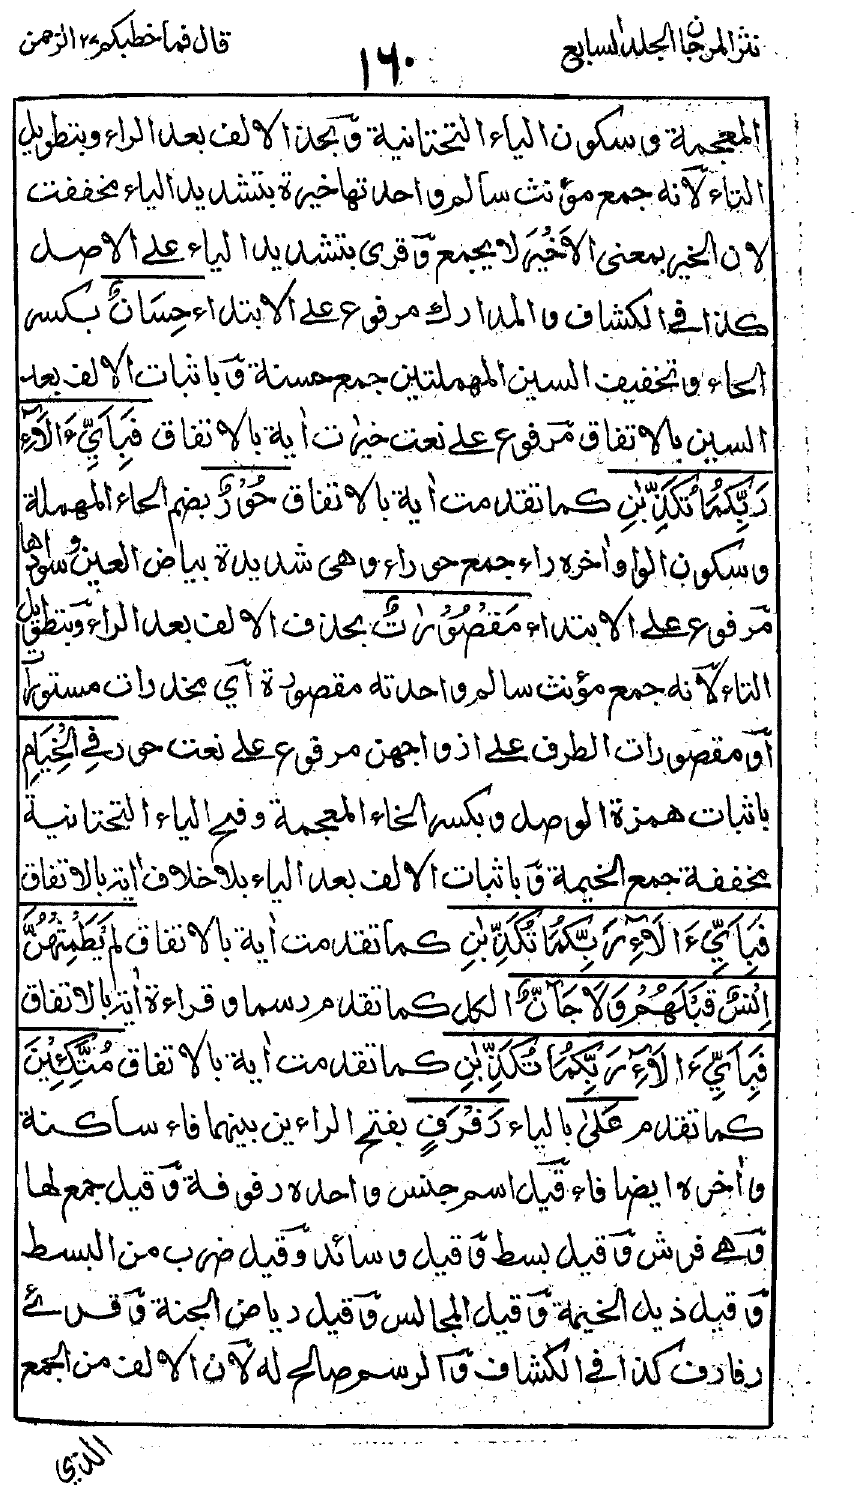 نثر المرجان الجلد السابع
١٦٠
قال فما خطبكم ٢٧ الرحمن
المعجمة وسكون الياء التحتانية وبحذف الالف بعد الراء وبتطويل
التاء لانه جمع مؤنث سالم واحدتها خيرة بتشديد الياء مخففت
لان الخير بمعنى الاَخْيَر لا يجمع وقرى بتشديد الياء على الاصل
كذا في الكشاف والمدارك مرفوع على الابتداء حِسَانٌ بكسر
الحاء وتخفيف السين المهملتين جمع حسنة وباثبات الالف بعد
السين بالاتفاق مرفوع على نعت خيرٰت اٰية بالاتفاق فَبِاَيِّ ءَالَآءِ
رَبِّكُمَا تُكَذِّبٰنِ كما تقدمت اٰية بالاتفاق حُوْرٌ بضم الحاء المهملة
وسكون الواو واٰخره راء جمع حوراء وهى شديدة بياض العين وسوادها
مرفوع على الابتداء مَقْصُوْرٰتٌ بحذف الالف بعد الراء وبتطويل
التاء لانه جمع مؤنث سالم واحدته مقصورة أي مخدرات مستورات
أو مقصورات الطرف على ازواجهن مرفوع على نعت حور فِي الْخِيَامِ
باثبات همزة الوصل وبكسر الخاء المعجمة وفتح الياء التحتانية
مخففة جمع الخيمة وباثبات الالف بعد الياء بلا خلاف اٰية بالاتفاق
فَبِاَيِّ ءَالَآءِ رَبِّكُمَا تُكَذِّبٰنِ كما تقدمت اٰية بالاتفاق لَمْ يَطْمِثْهُنَّ
اِنْسٌ قَبْلَهُمْ وَلَا جَآنٌّ الكل كما تقدم رسما وقراءة اٰية بالاتفاق
فَبِاَيِّ ءَالَآءِ رَبِّكُمَا تُكَذِّبٰنِ كما تقدمت اٰية بالاتفاق مُتَّكِـِٕيْنَ
كما تقدم عَلىٰ بالياء رَفْرَفٍ بفتح الراءين بينهما فاء ساكنة
واٰخره ايضا فاء قيل اسم جنس واحده رفرفة وقيل جمع لها
وهي فرش وقيل بسط وقيل وسائد وقيل ضرب من البسط
وقيل ذيل الخيمة وقيل المجالس وقيل رياض الجنة وقرئ
رفارف كذا في الكشاف والرسم صالح له لان الالف من الجمع
الذي